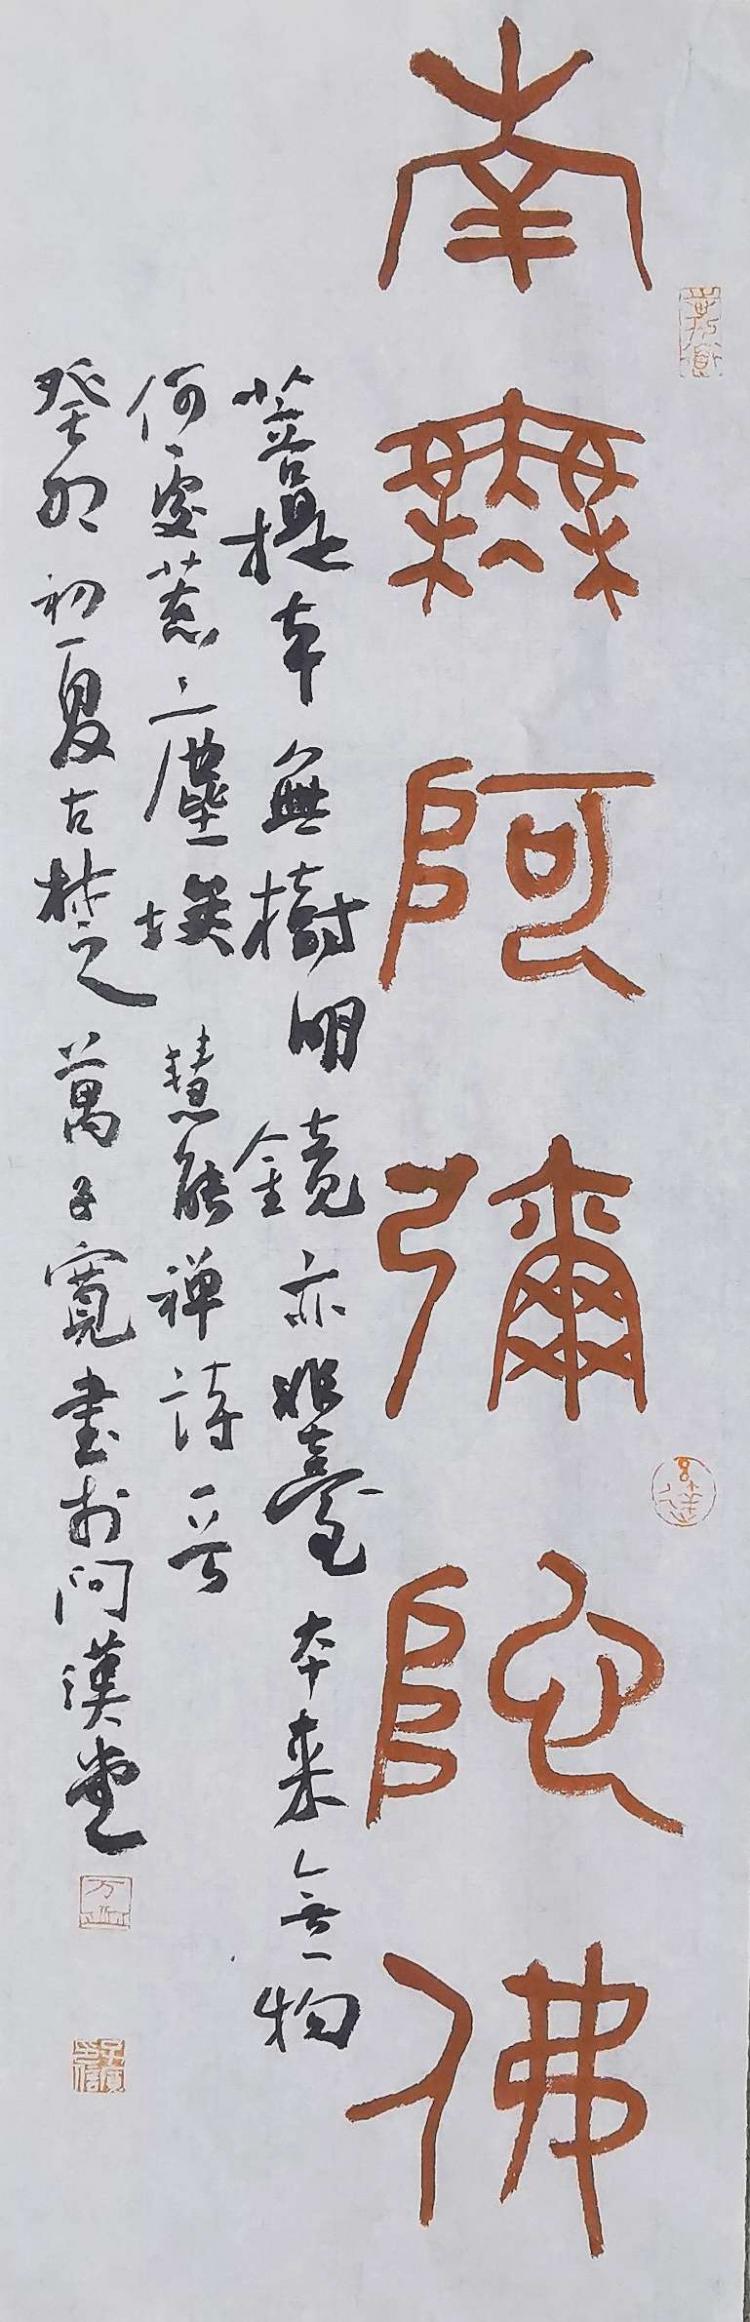 南無阿彌陀佛
菩提本無樹明鏡亦非臺本来無一物
何處惹塵埃 慧能禅詩一首
癸卯初夏古楚萬子寬書於問漢堂